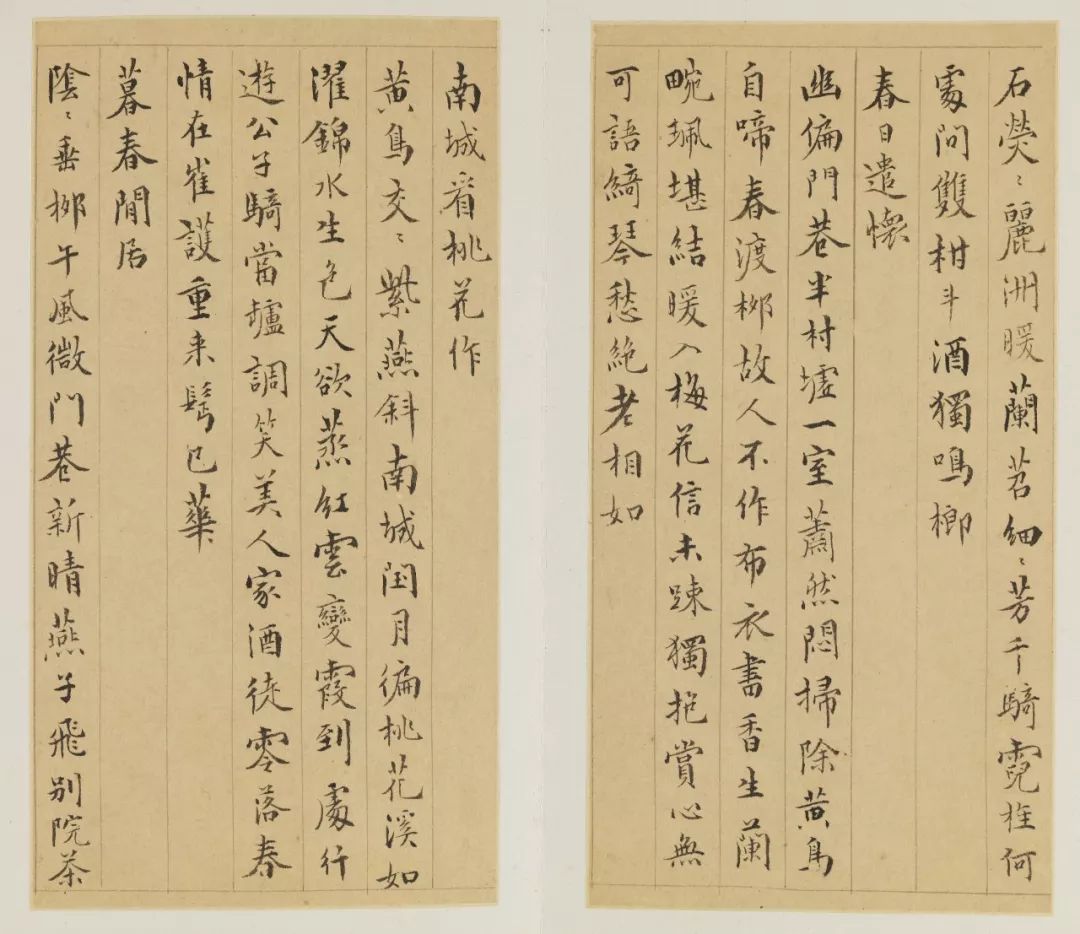 石熒〻麗洲暖蘭苕細〻芳千騎霓旌何
處問雙柑斗酒獨鳴榔
春日遣懷
幽偏門巷半村墟一室蕭然悶掃除黃鳥
自啼春渡柳故人不作布衣書香生蘭
畹珮堪結暖入梅花信未踈獨抱賞心無
可語綺琴愁絕老相如
南城看桃花作
黃鳥交〻紫燕斜南城閏月徧桃花溪如
濯錦水生色天欲蒸紅雲變霞到處行
遊公子騎當壚調笑美人家酒徒零落春
情在崔護重来鬓已華
暮春閒居
陰〻垂柳午風微門巷新晴燕子飛別院茶